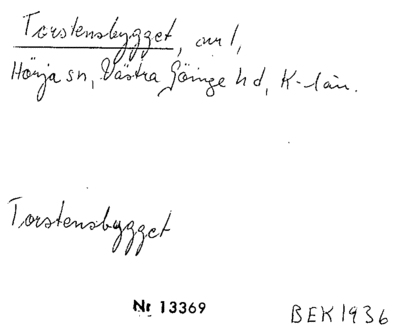 Torstensbygget, nr 1,
Hörja sn, Västra Göinge hd, K-län.
Torstensbygget
Nr 13369
BEK 1936